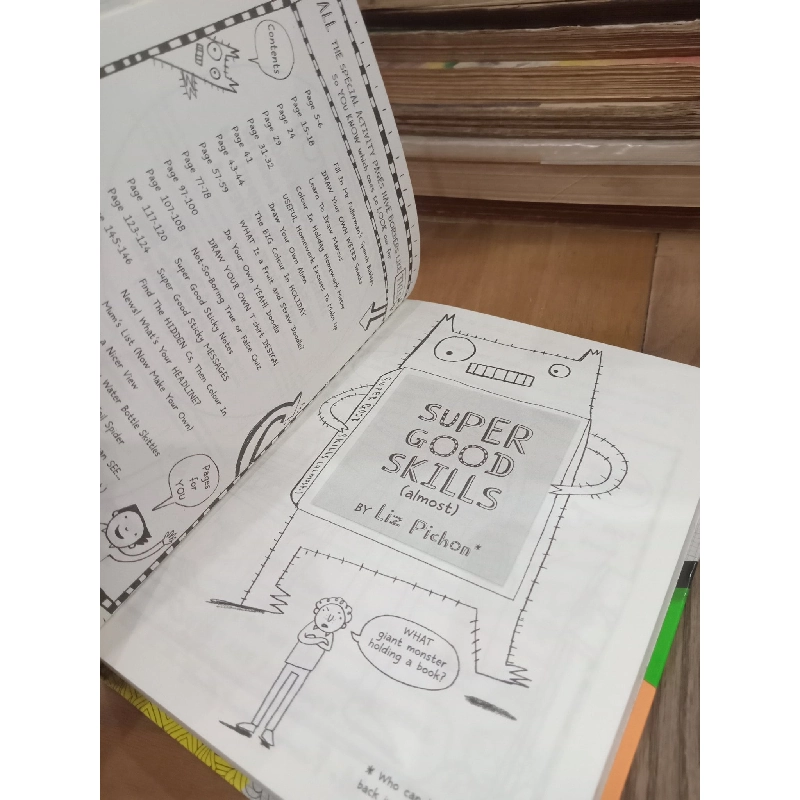 ALL THE SPECIAL ACTIVITY PAGES HAVE BORDERS LIKE THIS
SO YOU KNOW which ones to LOOK out for
Contents
Page 5-6
Page 15-18
Page 24
Page 29
Page 31-32
Page 41
Page 43-44
Page 57-59
Page 77-78
Page 97-100
Page 107-108
Page 117-120
Page 123-124
145-146
DRAW YOUR OWN WEIRD
Learn To Draw Marcus
Colour In Holiday Homework
USEFUL Homework Excuses To Make Up
Draw Your Own Alien
The BIG Colour In HOLIDAY
WHAT Is a Fruit and Straw Doodle?
Do Your Own YEAH! Doodle
DRAW YOUR OWN T shirt DESIGN
Not-So-Boring True or False Quiz
Super Good Sticky Notes
Super Good Sticky MESSAGES
Find The HIDDEN Cs, Then Colour In
News! What's Your HEADLINE?
Mum's List (Now Make Your Own)
a Nicer View
Water Bottle Skittles
Spider
SEE...
Pages
for
YOU
SUPER
GOOD
SKILLS
(almost)
BY Liz Pichon*
WHAT
giant monster
holding a book?
* Who can
back